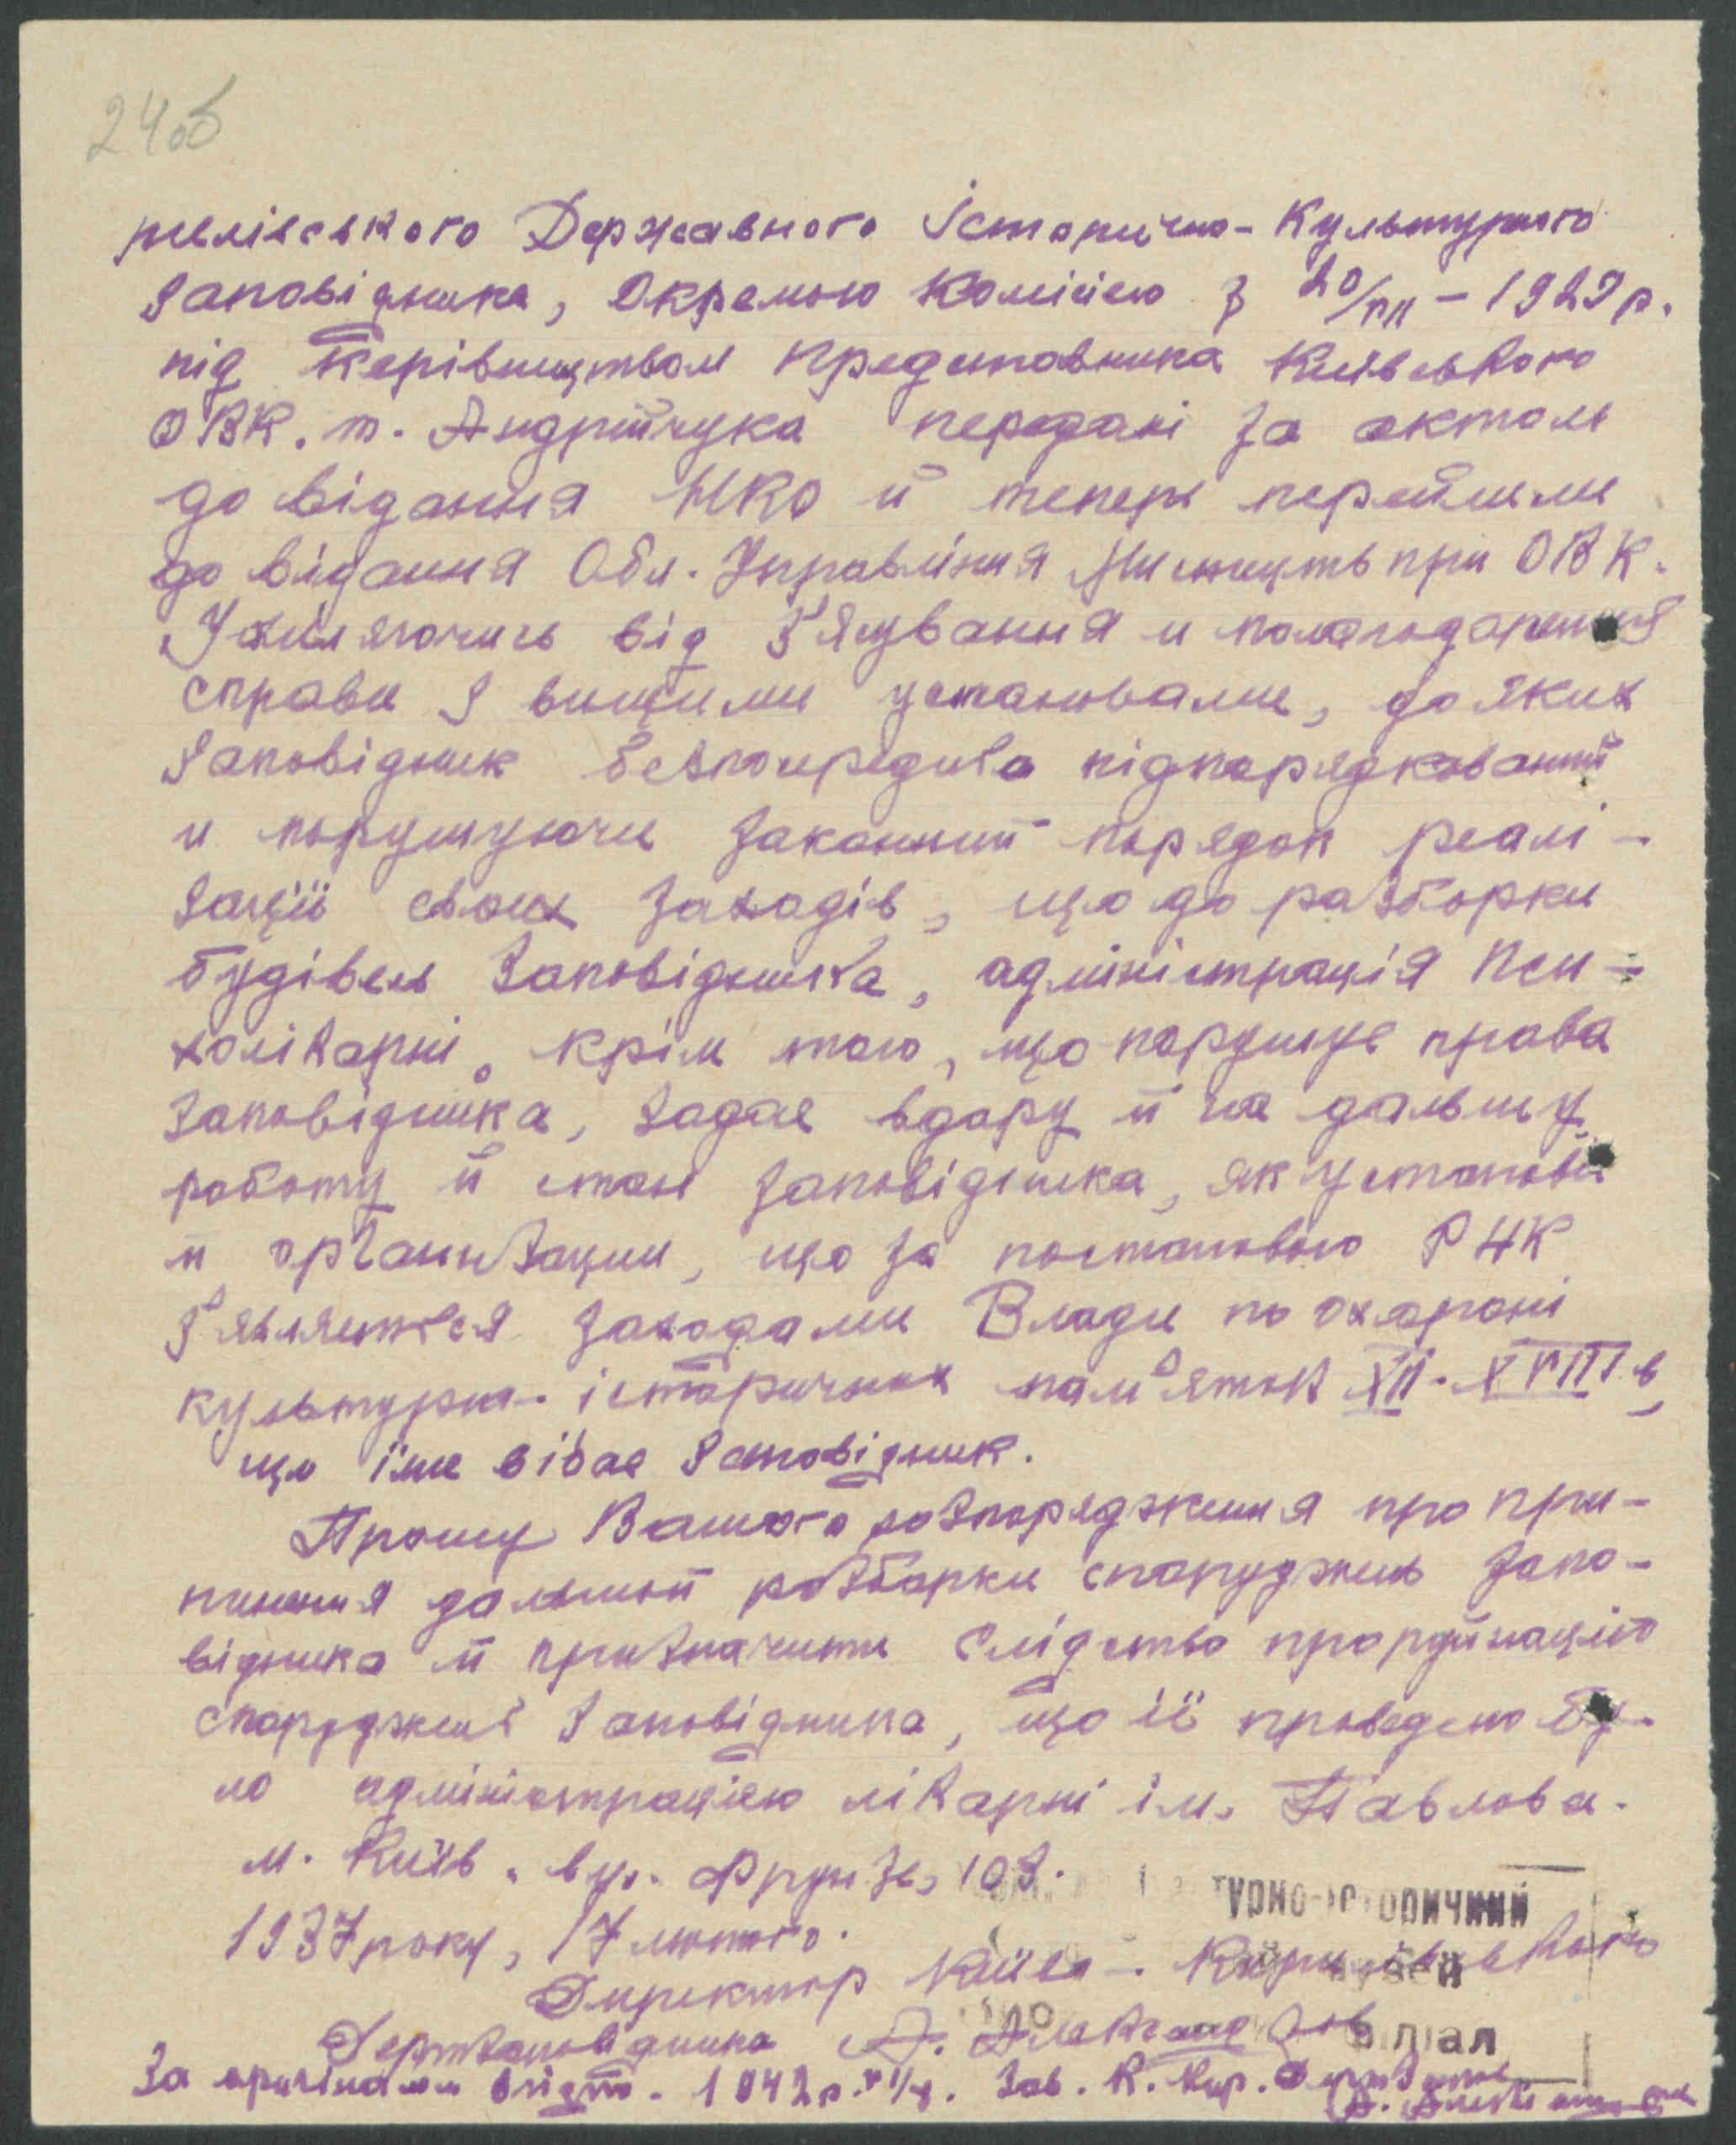 24об
рилівського Державного Історично-Культурного
Заповідника, Окремою Комісією з 20/ІІІ-1929 р.
під керівництвом Предстовника Київського
ОВК. т. Андрійчука передані за актом
до відання НКО й тепер перейшли
до відання Обл. Управління Мистецтв при ОВК.
Ухиляючись від З'ясування и полагодження
справи з вищими установами, до яких
Заповідник безпосредньо підпорядкований
и порушуючи законний порядок реалі-
зації своих заходів, що до разборки
будівель Заповідника, адміністрація Пси-
холікарні, крім того, що порушує права
Заповідника, задає вдару й на дальшу
работу й стан Заповідника, як установи
й организации, що за постановою РНК
з'является заходами Влади по охороні
культурно-історичних пам'яток XII-XVIII в,
що іми відає Заповідник.
Прошу Вашого розпорядження про при-
пинення дальшой розборки споруджень Запо-
відника й призначити Слідство про руйнацію
споруджень Заповідника, що її проведено бу-
ло адміністрацією лікарні ім. Павлова.
м. Київ. вул. Фрунзе, 103.
1937 року, 17 лютого.
турно-історичний
Директор Київо-Кирилівського
Держзаповідника А. Александров
філіал
За оригіналом згідно. 1942 р. Зав. К. Кир. Держзапов.